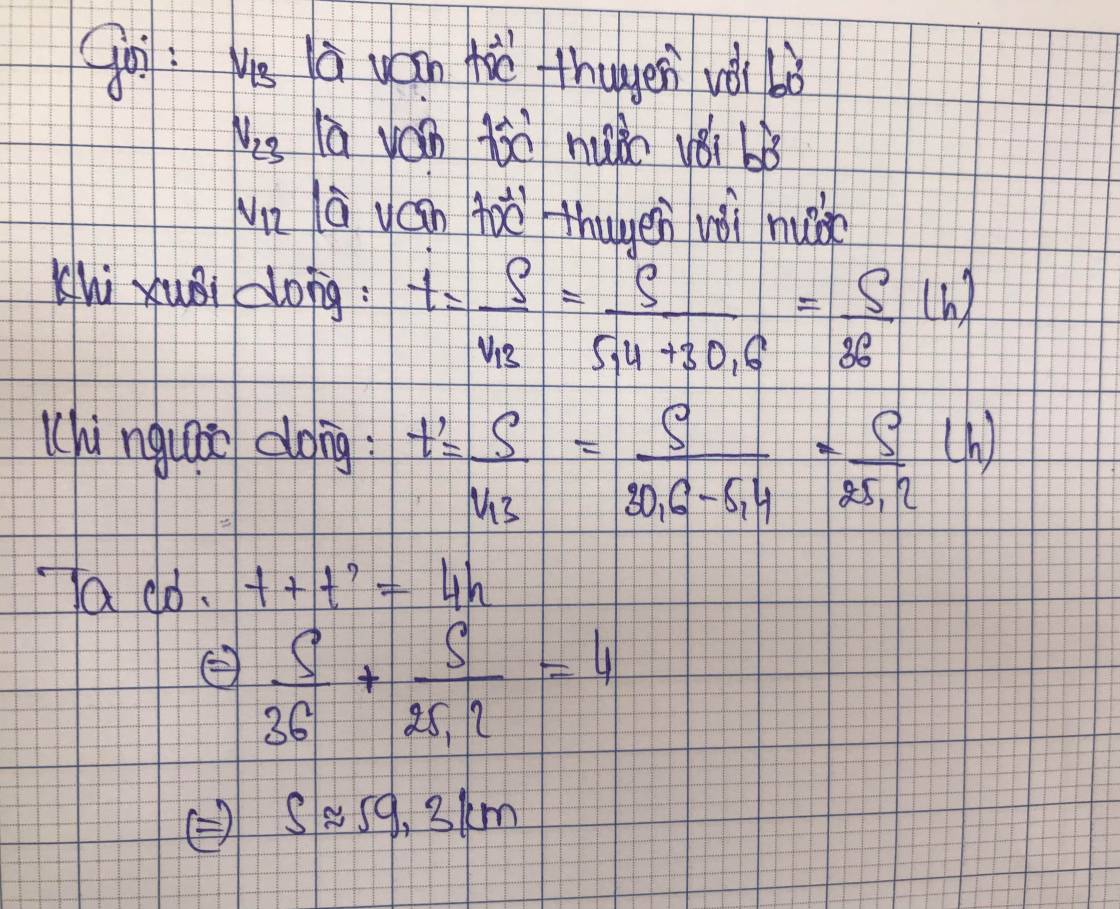 Gọi: v₁₃ là vận tốc thuyền với bờ
v₂₃ là vận tốc nước với bờ
v₁₂ là vận tốc thuyền với nước
Khi xuôi dòng: t = S/v₁₃ = S/(5,4 + 30,6) = S/36 (h)
Khi ngược dòng: t' = S/v₁₃ = S/(30,6 - 5,4) = S/25,2 (h)
Ta có. t + t' = 4h
⇔ S/36 + S/25,2 = 4
⇔ S ≈ 59,3 km